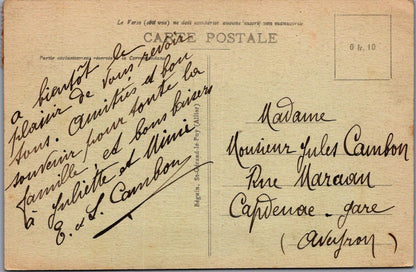 Le Verso (côté vue) ne doit comporter aucune
CARTE POSTALE
Partie exclusivement réservée à la Correspondance
0 fr. 10
à bientôt le
plaisir de vous revoir
tous. Amitiés et bon
souvenir pour toute la
famille, et bons baisers
à Juliette et Mimi
E. et L. Cambon
Béguin, St-Gérand-le-Puy (Allier)
Madame
Monsieur Jules Cambon
Rue
Capdenac-gare
(Aveyron)